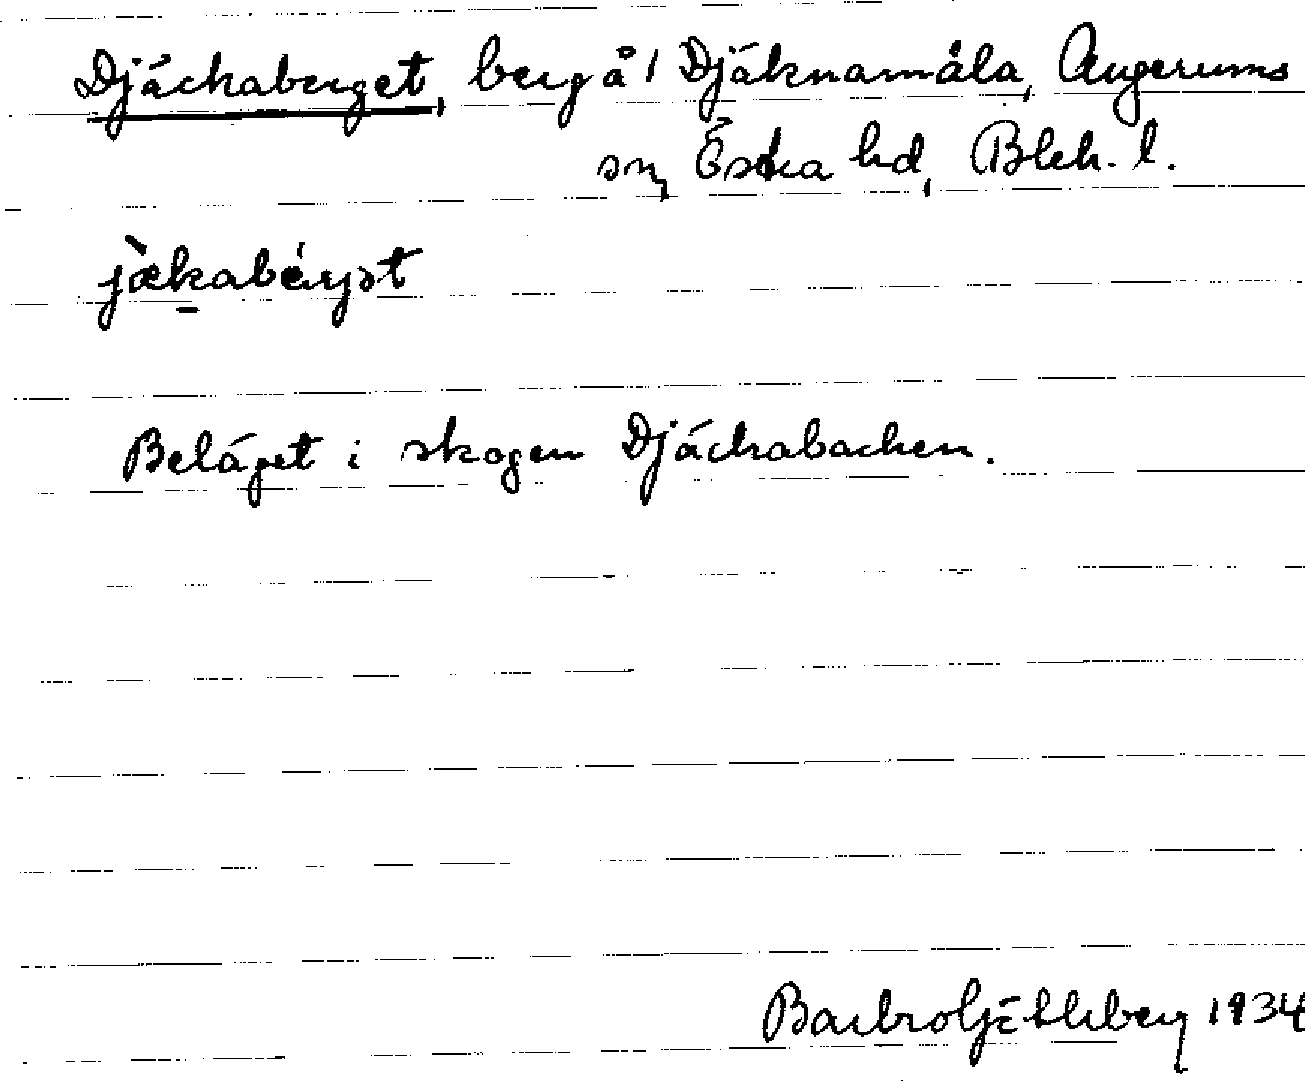 Djäckaberget, berg å 1 Djäknamåla, Augerums
sn, Östra hd, Blek. l.
jæ̀kabǽrjət
Beläget i skogen Djäckabacken.
Barbro 1934